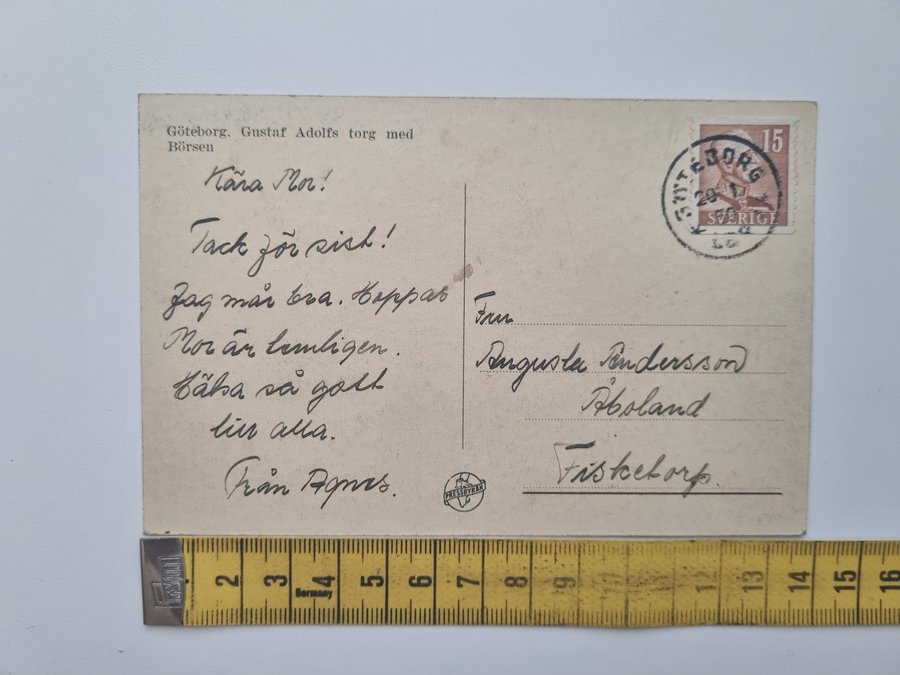 Göteborg. Gustaf Adolfs torg med
Börsen
Kära Mor!
Tack för sist!
Jag mår bra. Hoppas
Mor är temligen.
Hälsa så gott
till alla.
Från Agnes.
15
SVERIGE
GÖTEBORG
Fru
Augusta Andersson
Åboland
Fisketorp.
PRESSBYRÅN
Germany
2 3 4 5 6 7 8 9 10 11 12 13 14 15 16